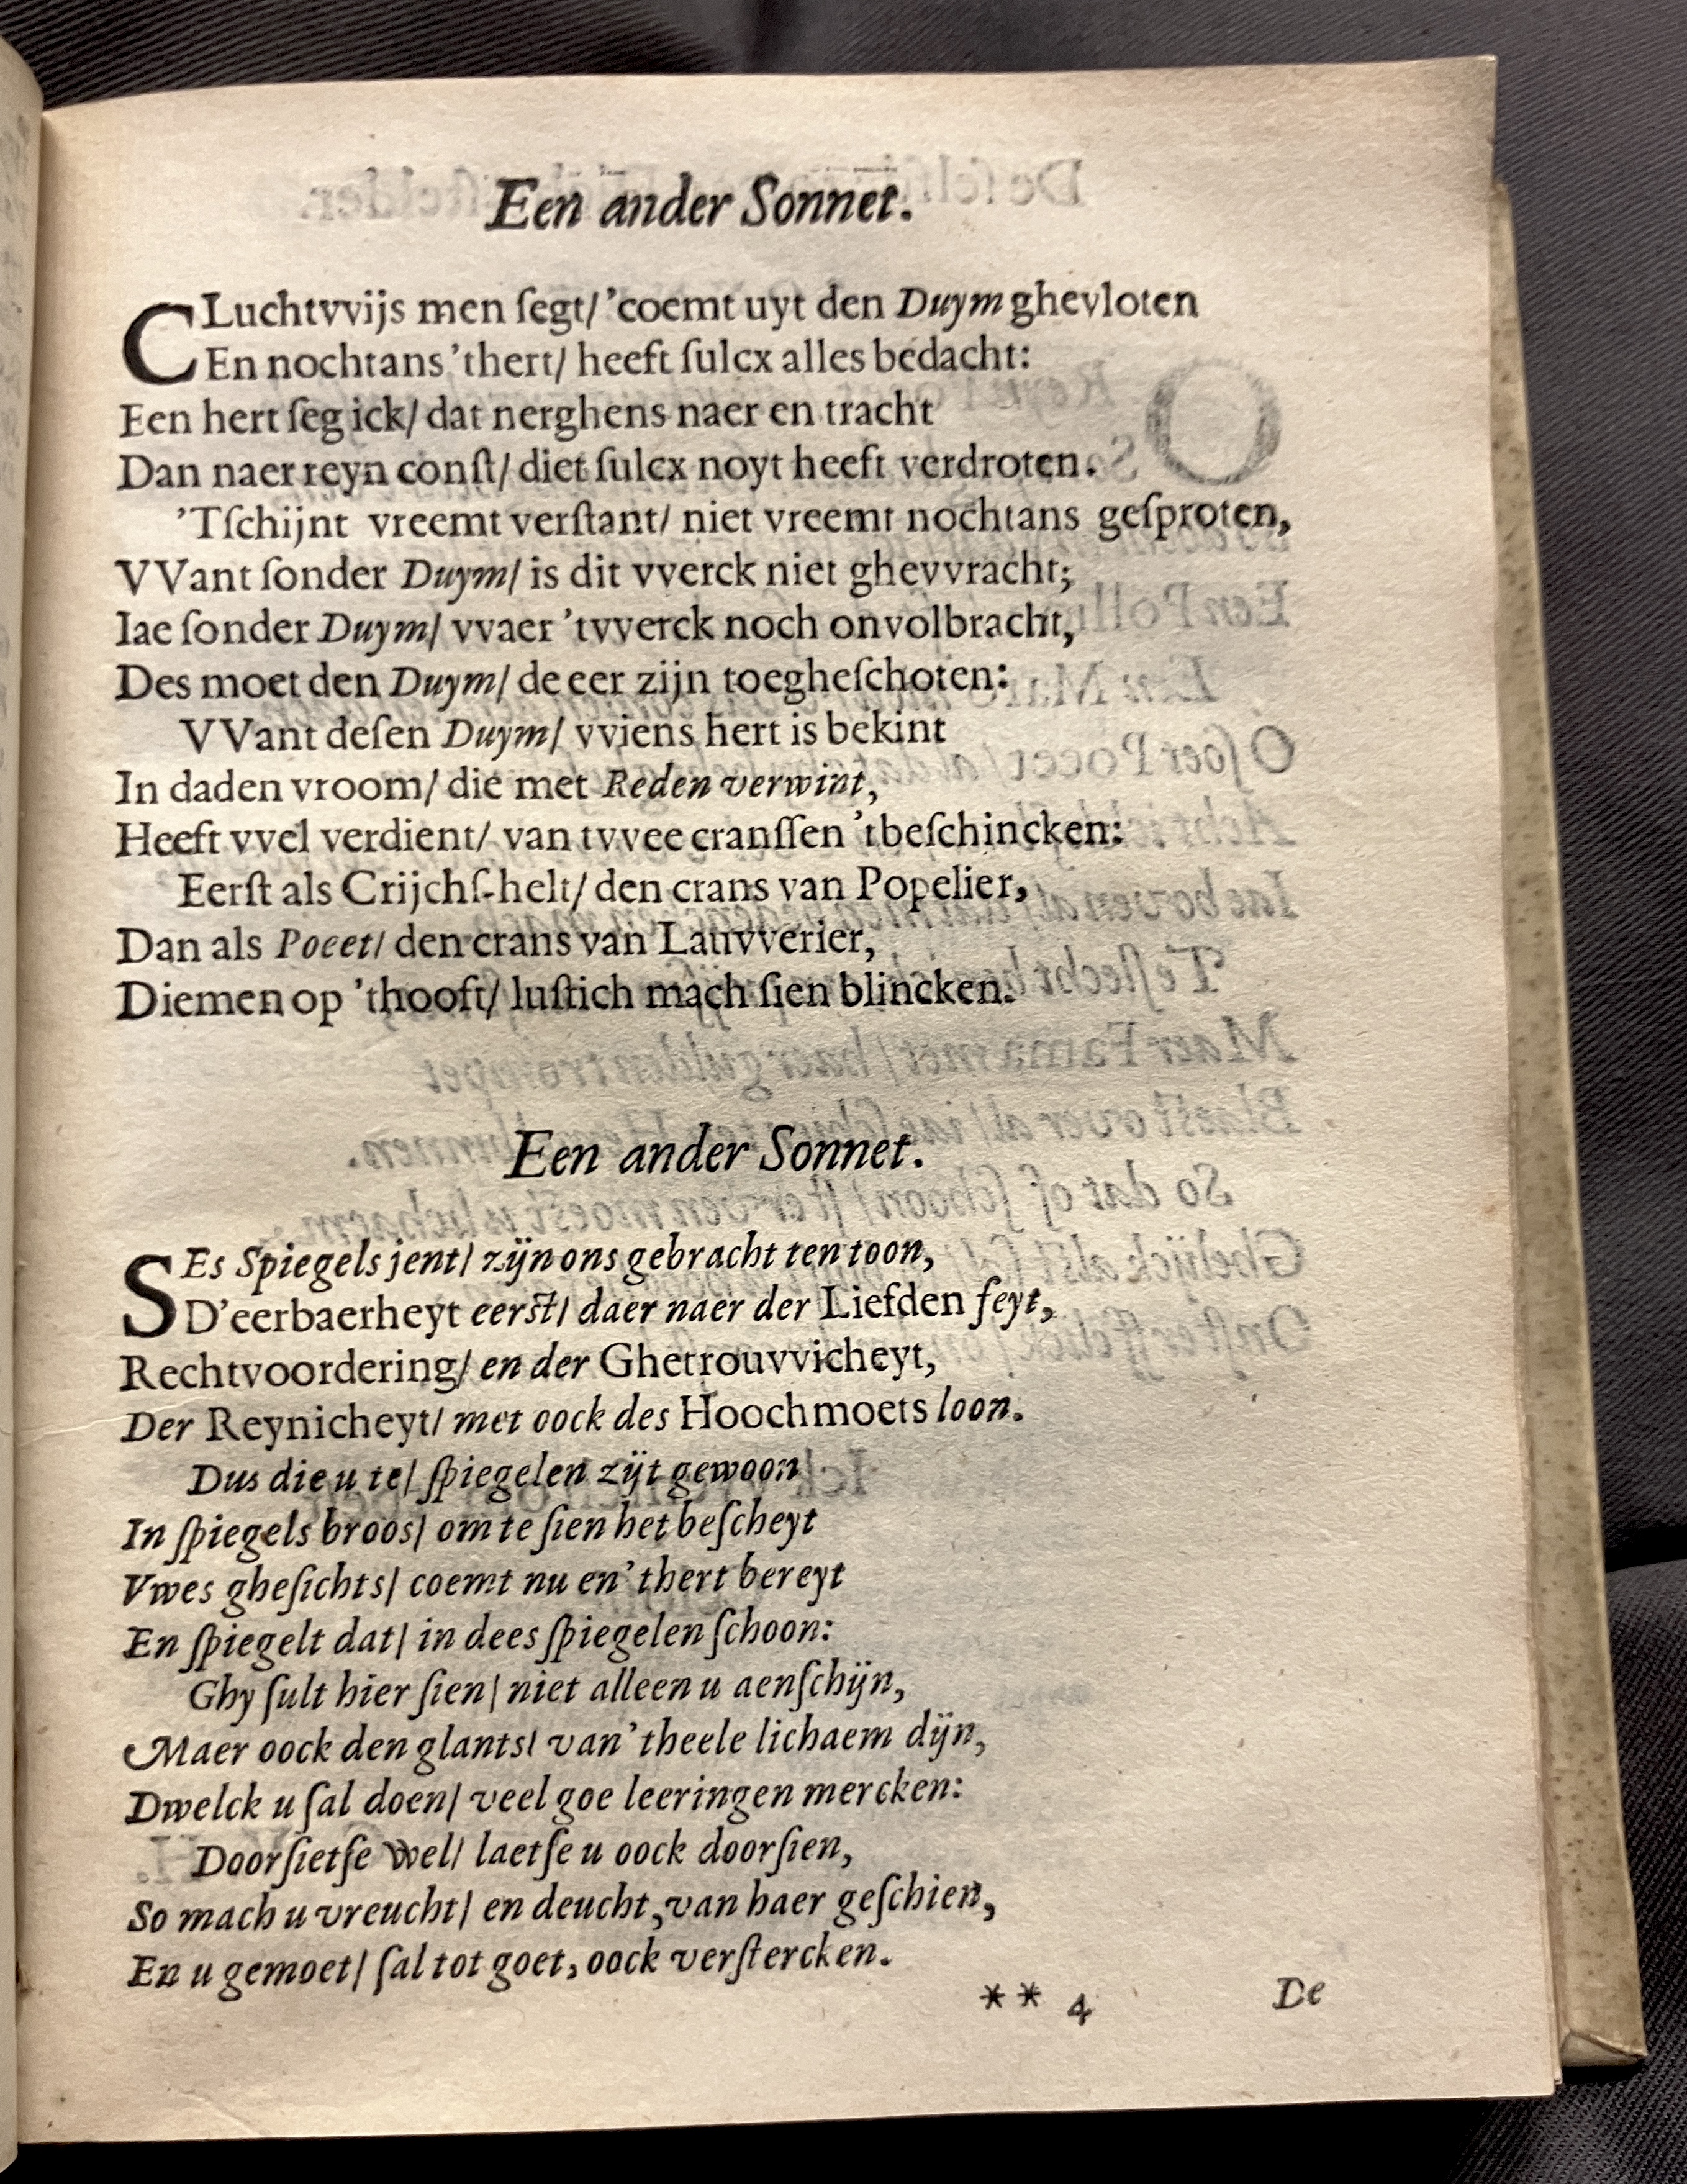 Een ander Sonnet.
CLuchtvvijs men ſegt/ 'coemt uyt den Duym ghevloten
En nochtans 'thert/ heeft ſulcx alles bedacht:
Een hert ſeg ick/ dat nerghens naer en tracht
Dan naer reyn conſt/ diet ſulcx noyt heeft verdroten.
'Tſchijnt vreemt verſtant/ niet vreemt nochtans geſproten,
VVant ſonder Duym/ is dit vverck niet ghevvracht;
Iae ſonder Duym/ vvaer 'tvverck noch onvolbracht,
Des moet den Duym/ de eer zijn toegheſchoten:
VVant deſen Duym/ vviens hert is bekint
In daden vroom/ die met Reden verwint,
Heeft vvel verdient/ van tvvee cranſſen 'tbeſchincken:
Eerſt als Crijchſ-helt/ den crans van Popelier,
Dan als Poeet/ den crans van Lauvverier,
Diemen op 'thooft/ luſtich mach ſien blincken.
Een ander Sonnet.
SEs Spiegels jent/ zijn ons gebracht ten toon,
D'eerbaerheyt eerſt/ daer naer der Liefden feyt,
Rechtvoordering/ en der Ghetrouvvicheyt,
Der Reynicheyt/ met oock des Hoochmoets loon.
Dus die u te/ ſpiegelen zijt gewoon
In ſpiegels broos/ om te ſien het beſcheyt
Vwes gheſichts/ coemt nu en 'thert bereyt
En ſpiegelt dat/ in dees ſpiegelen ſchoon:
Ghy ſult hier ſien/ niet alleen u aenſchijn,
Maer oock den glants/ van 'theele lichaem dijn,
Dwelck u ſal doen/ veel goe leeringen mercken:
Doorſietſe wel/ laetſe u oock doorſien,
So mach u vreucht/ en deucht, van haer geſchien,
En u gemoet/ ſal tot goet, oock verſtercken.
** 4 De